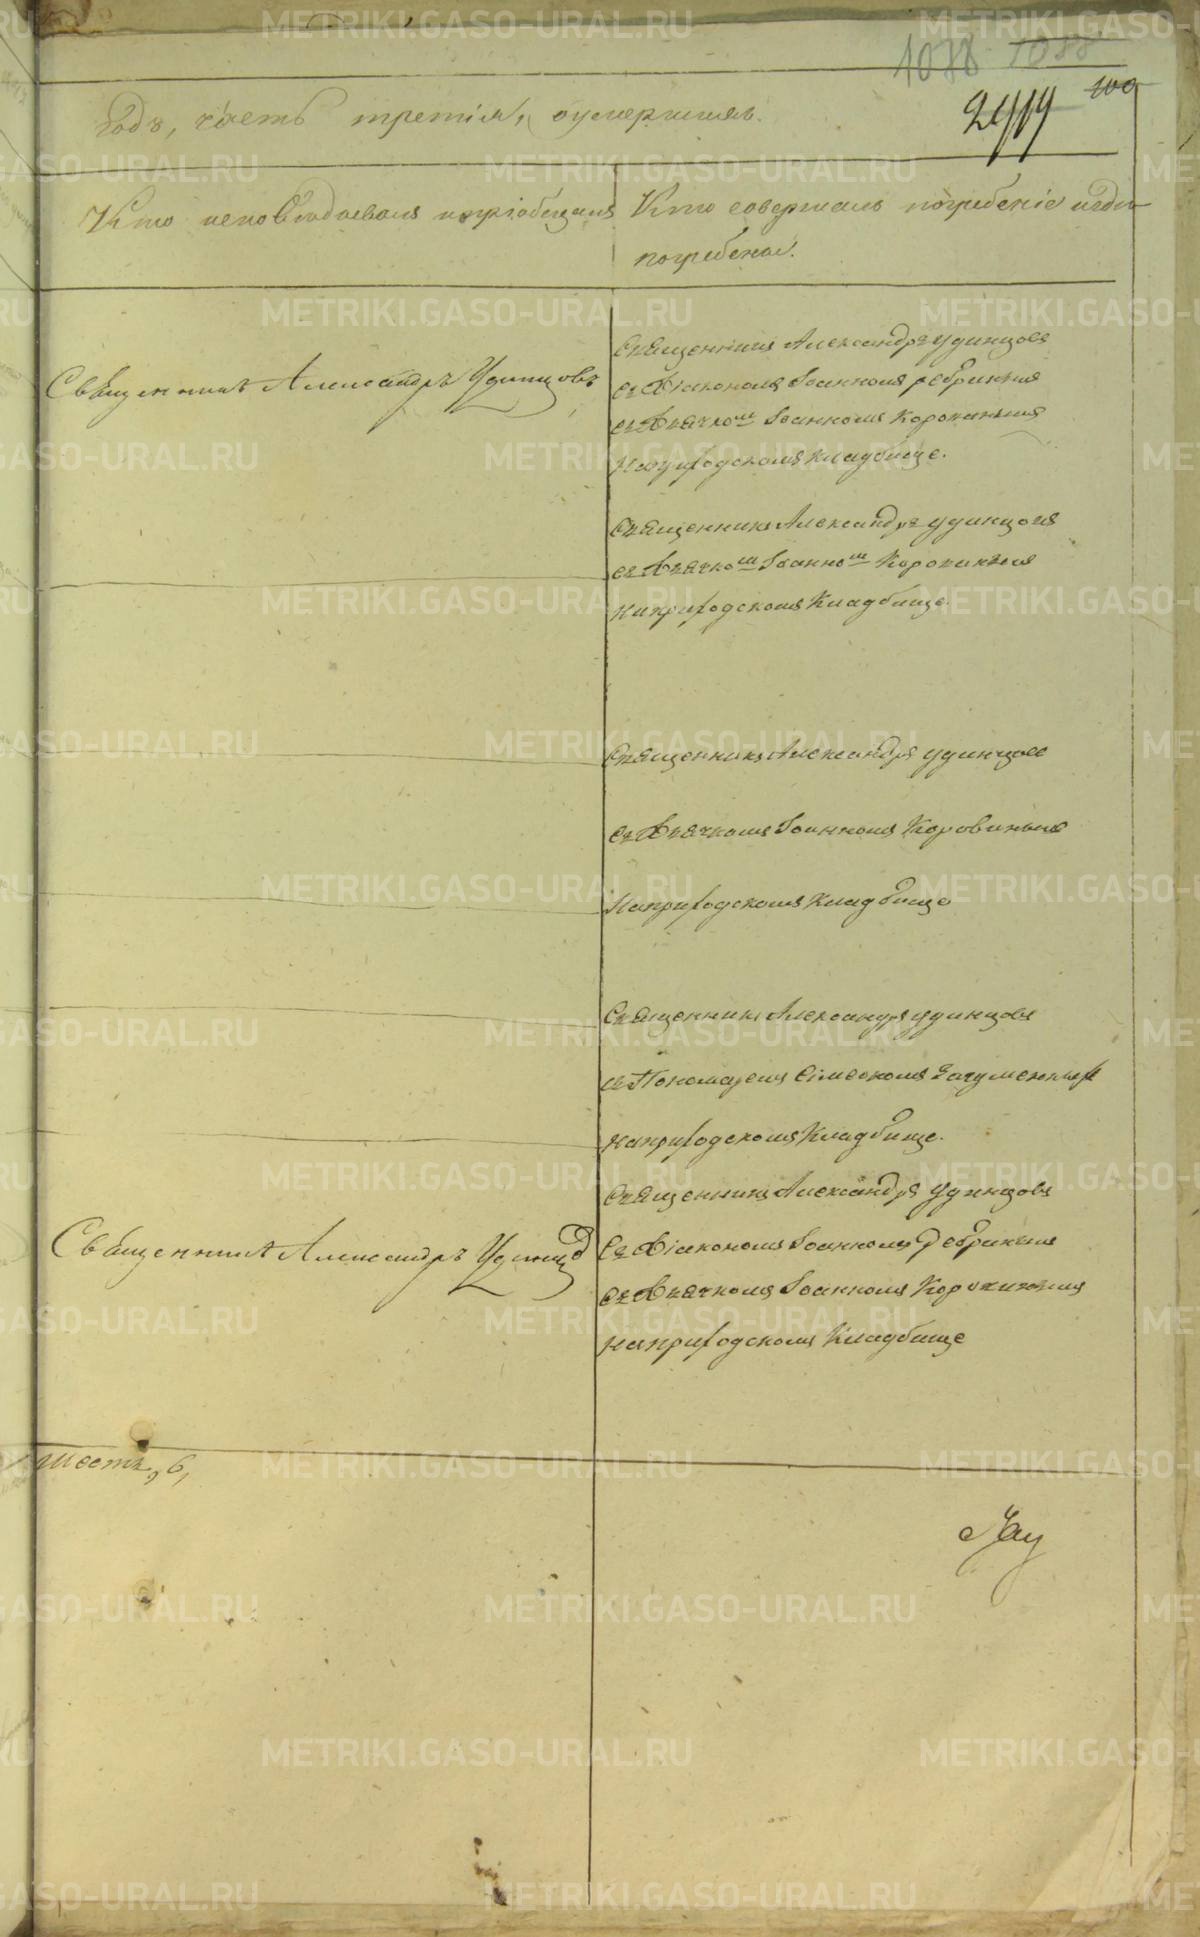 1088 1088
годъ, часть третія, оумершихъ.
2919 100
Кто исповѣдовалъ и пріобщалъ
Кто совершалъ погребеніе и гдѣ
погребены.
Священникъ Александръ Удинцовъ
Священникъ Александръ Удинцовъ
съ Діакономъ Іоанномъ Ребринымъ
съ Дьячкомъ Іоанномъ Коровинымъ
На приходскомъ кладбище.
Священникъ Александръ Удинцовъ
съ Дьячкомъ Іоанномъ Коровинымъ
на приходскомъ Кладбище.
Священникъ Александръ Удинцовъ
съ Дьячкомъ Іоанномъ Коровинымъ
На приходскомъ Кладбище
Священникъ Александръ Удинцовъ
съ Пономаремъ Сімеономъ
на приходскомъ Кладбище.
Священникъ Александръ Удинцовъ
Священникъ Александръ Удинцовъ
съ Діакономъ Іоанномъ Ребринымъ
съ Дьячкомъ Іоанномъ Коровинымъ
на приходскомъ Кладбище
шесть, 6,
METRIKI.GASO-URAL.RU